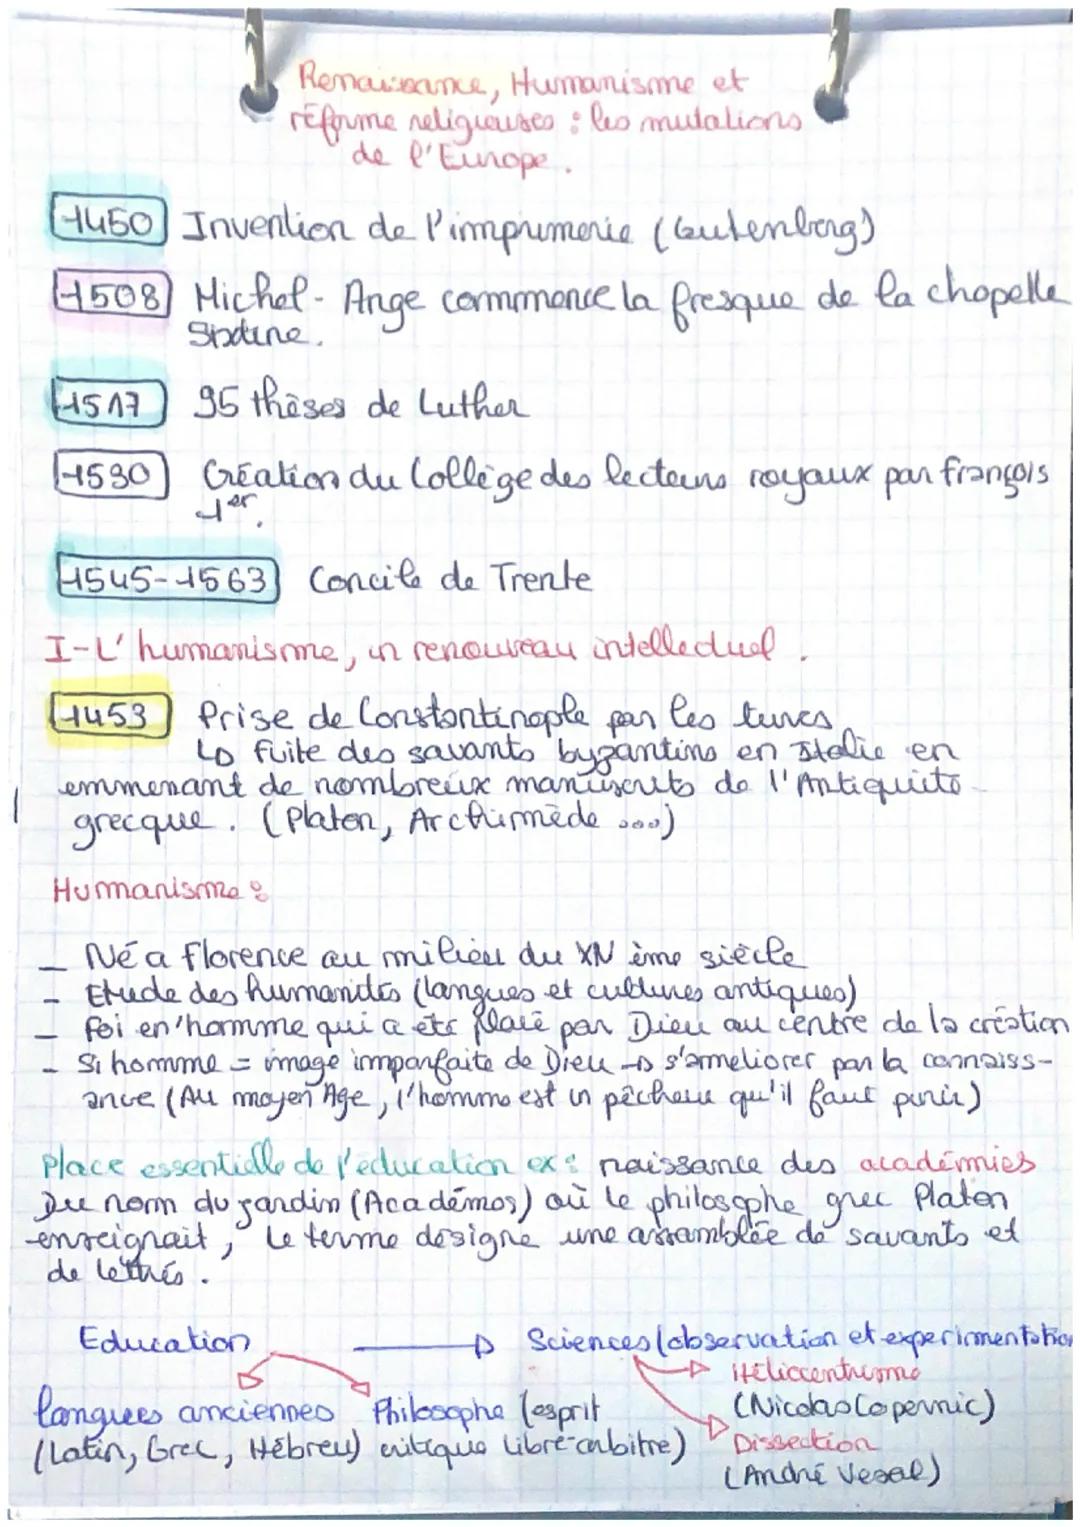 Renaissance, Humanisme et
réforme religieuses : les mutations
de l'Europe.
1450 Invention de l'imprimerie (Gutenberg)
1508 Michel-Ange commence la fresque de la chapelle
Sixtine.
1517 95 thèses de Luther
1530 Création du Collège des lecteurs royaux par françois
1er.
1545-1563 Concile de Trente
I-L'humanisme, un renouveau intellectuel.
1453 Prise de Constantinople par les turcs
↳ fuite des savants byzantins en Italie en
emmenant de nombreux manuscrits de l'Antiquité
grecque. (Platon, Archimède ...)
Humanisme :
- Né a Florence au milieu du XV ème siècle
- Etude des humanités (langues et cultures antiques)
- foi en l'homme qui a été placé par Dieu au centre de la création
- Si homme = image imparfaite de Dieu → s'ameliorer par la connaiss-
ance (Au moyen Age, l'homme est un pêcheur qu'il faut punir)
Place essentielle de l'éducation ex : naissance des académies
Du nom du jardin (Académos) où le philosophe grec Platon
enseignait, le terme désigne une assamblée de savants et
de lettrés.
Education → Sciences (observation et experimentation
Héliocentrisme
langues anciennes Philosophe (esprit (Nicolas Copernic)
(Latin, Grec, Hébreu) critique libre-arbitre) Dissection
(André Vesal)